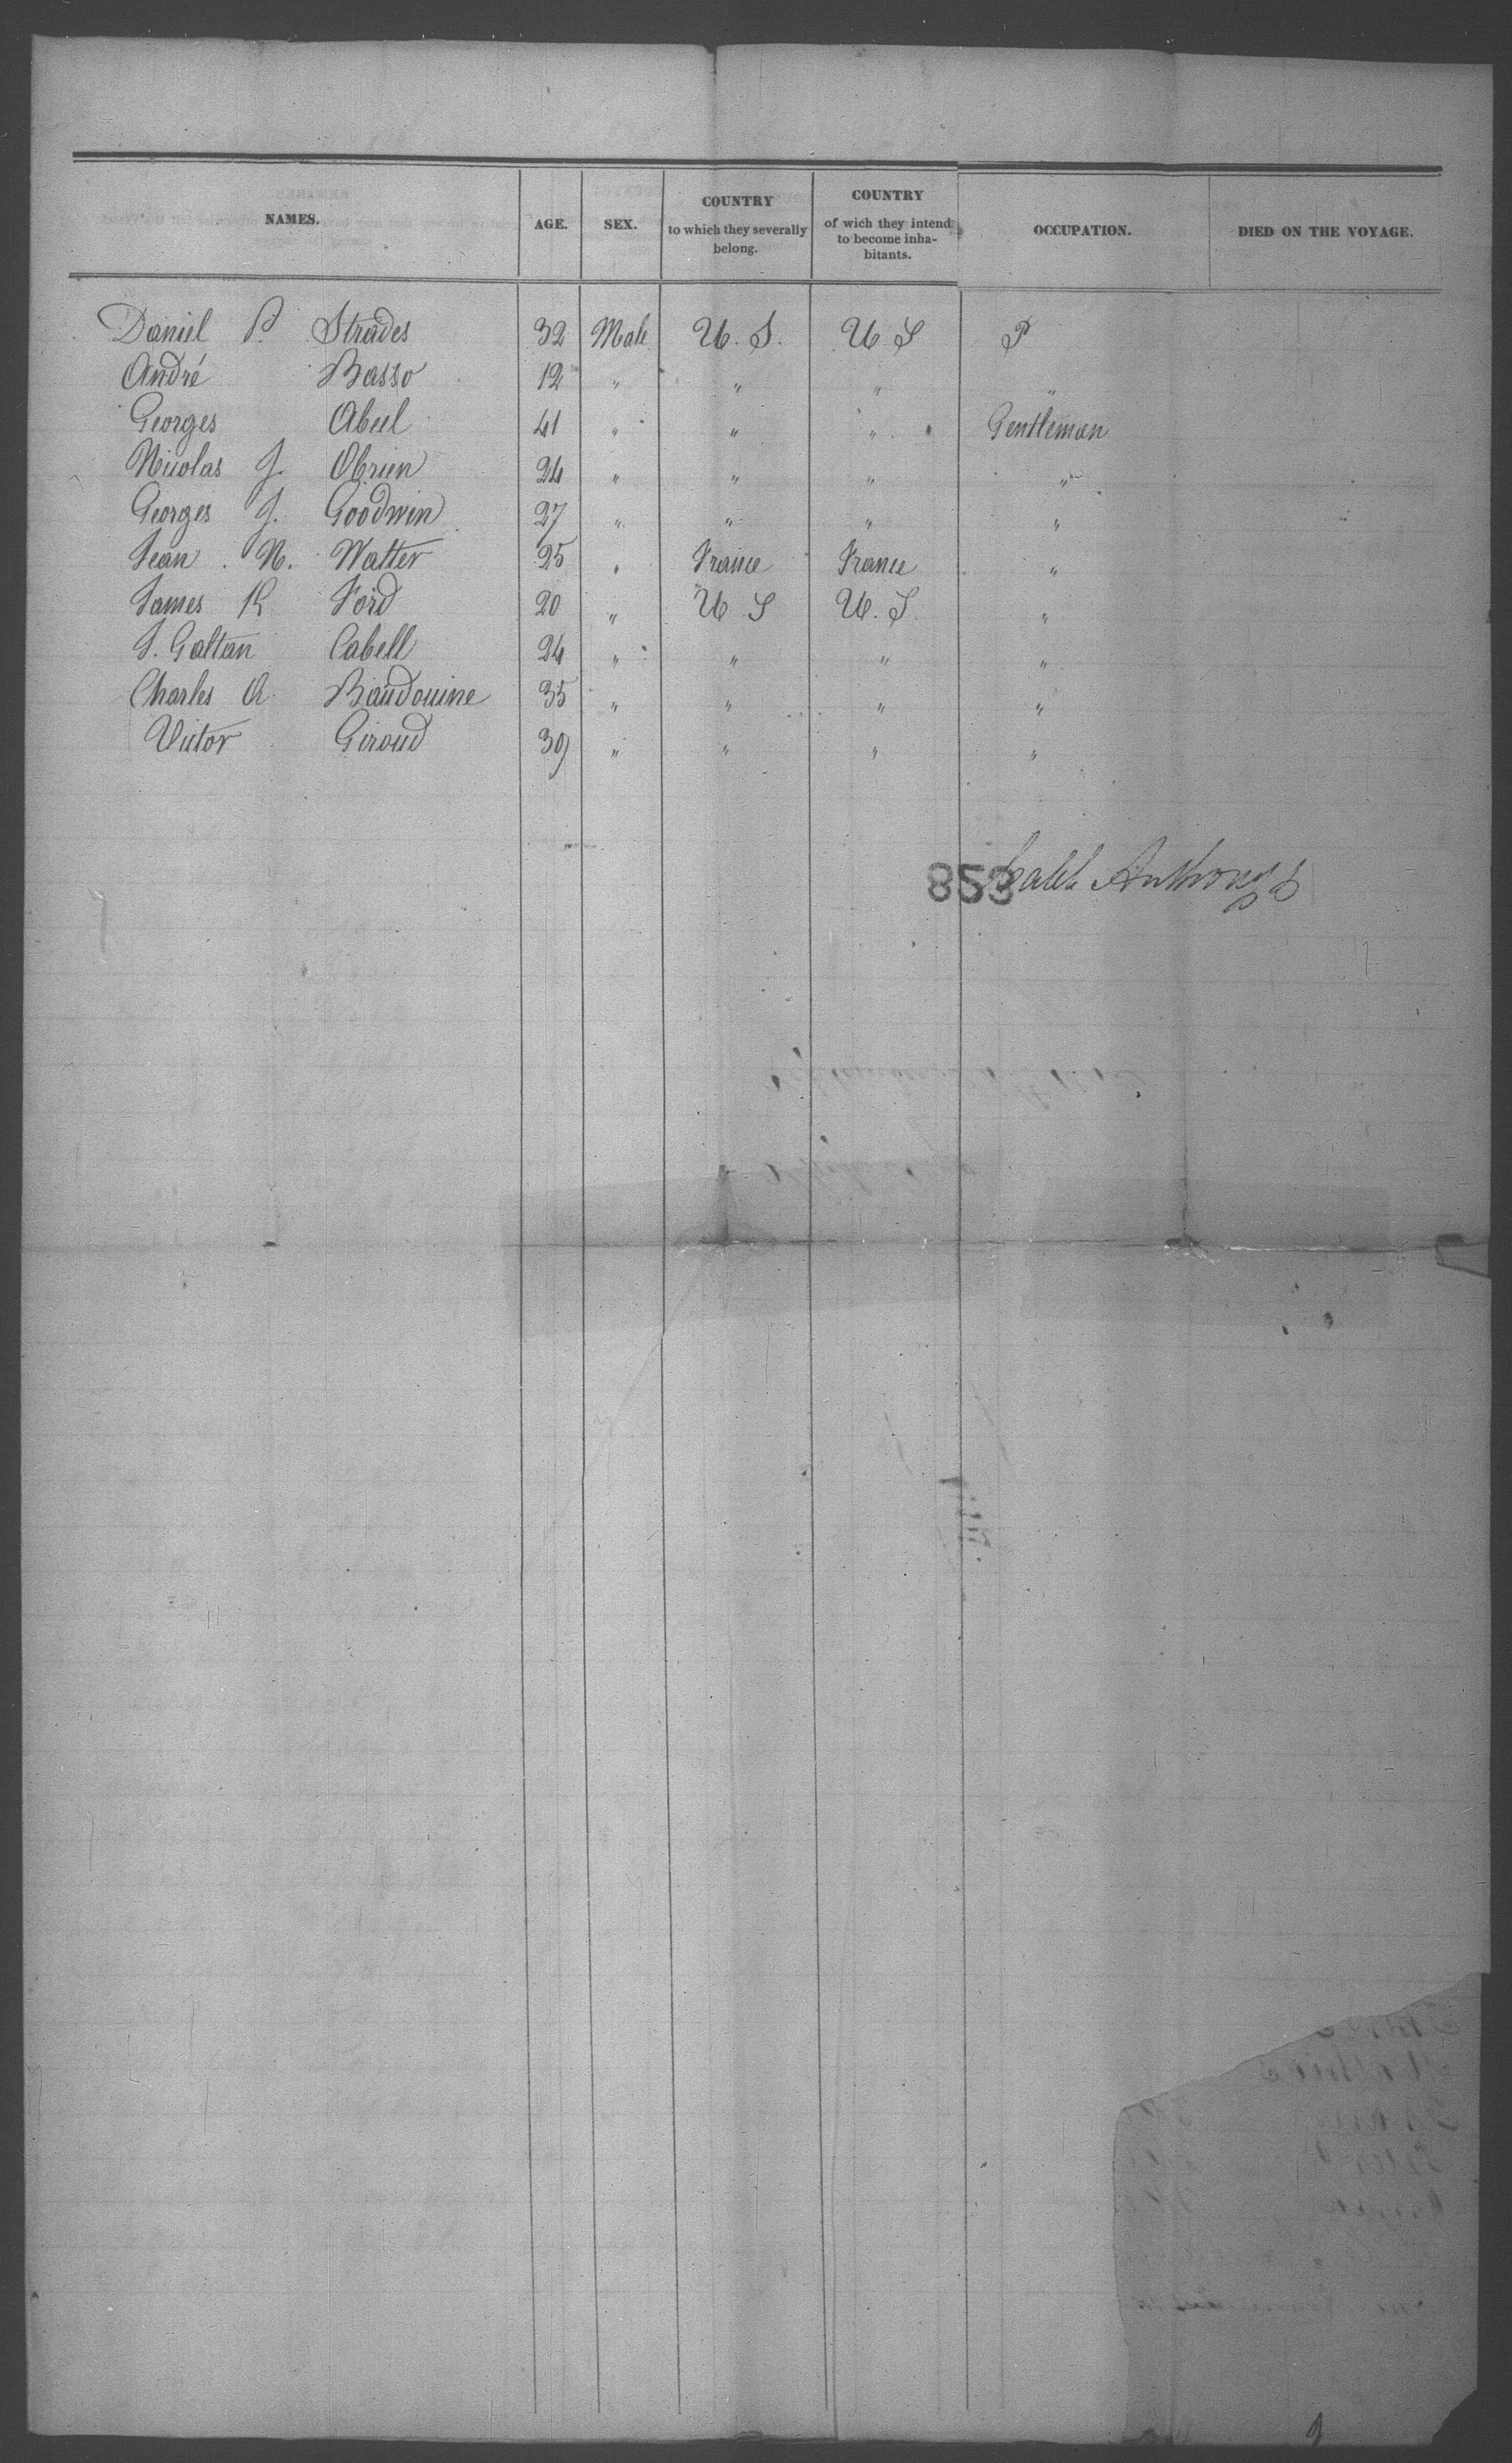 NAMES. AGE. SEX. COUNTRY to which they severally belong. COUNTRY of wich they intend to become inha-bitants. OCCUPATION. DIED ON THE VOYAGE.
Daniel P. Strades 32 Male U. S. U. S P
André Basso 12 " " " "
Georges Abeel 41 " " " Gentleman
Nicolas J. Obrien 24 " " " "
Georges J. Goodwin 27 " " " "
Jean N. Walter 25 " France France "
James R Ford 20 " U S U. S. "
J. Galtan Cabell 24 " " " "
Charles A Baudouine 35 " " " "
Victor Giroud 39 " " " "
853 Anthony